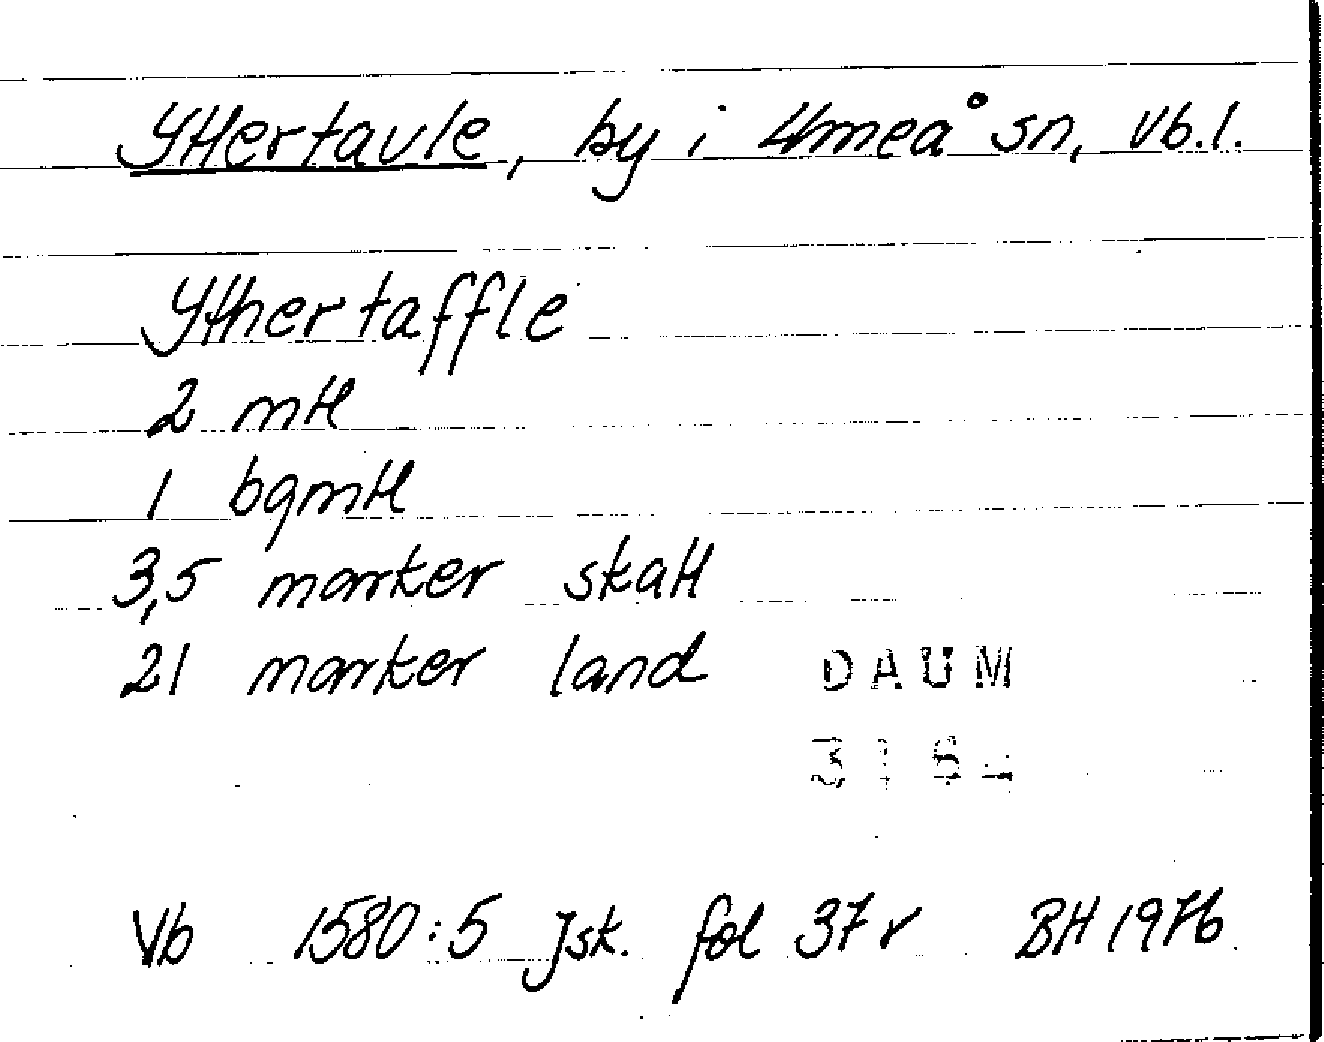 Yttertavle, by i Umeå sn, Vb.l.
Ythertaffle
2 mtl
1 bqmtl
3,5 marker skatt
21 marker land
DAUM
Vb 1580:5 Jsk. fol 37 r BH 1976